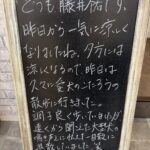 どうも藤井佑です。
昨日から一気に涼しく
なりましたね。夕方には
涼しくなるので、昨日は
久々に愛犬のこたろうの
散歩に行きました。
調子良く歩いていましたが
遠くから聞こえた大型犬の